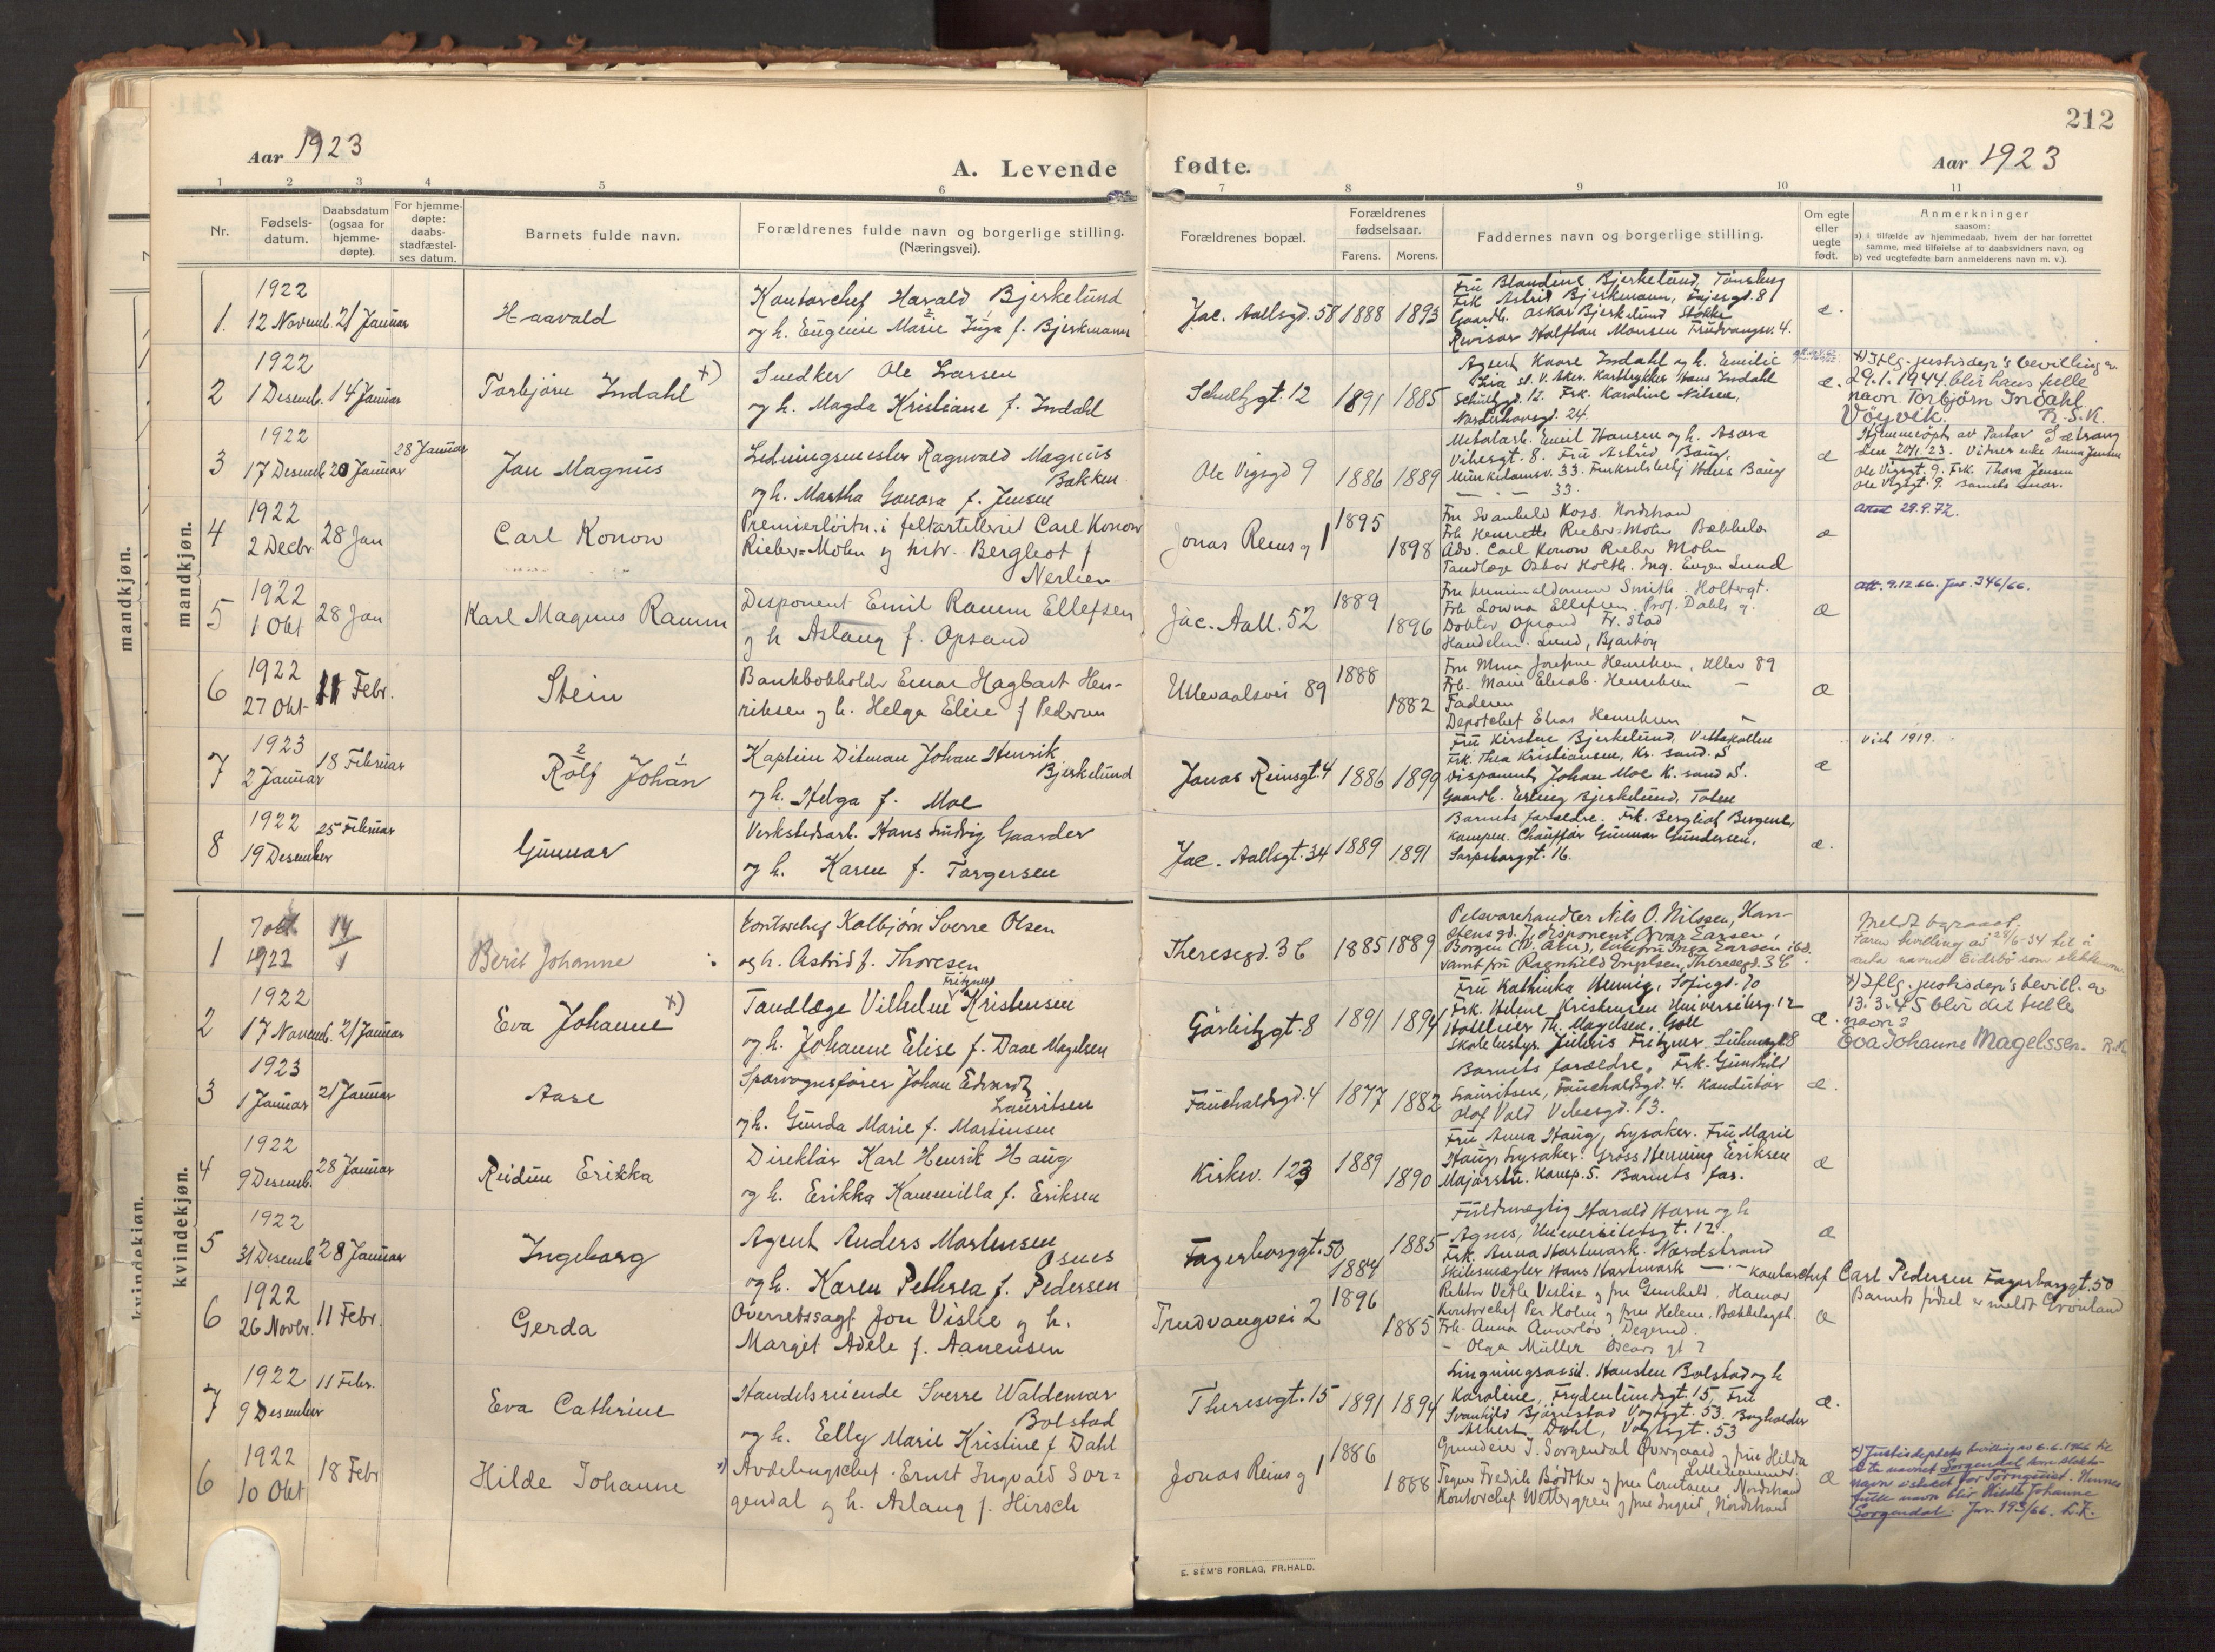 212
Aar 1923
A. Levende fødte.
Aar 1923
1 2 3 4 5 6 7 8 9 10 11
Nr.
Fødsels-
datum.
Daabsdatum
(ogsaa for
hjemme-
døpte).
For hjemme-
døpte:
daabs-
stadfæstel-
ses datum.
Barnets fulde navn.
Forældrenes fulde navn og borgerlige stilling.
(Næringsvei).
Forældrenes bopæl.
Forældrenes
fødselsaar.
Farens. Morens.
Faddernes navn og borgerlige stilling.
Om egte
eller
uegte
født.
Anmerkninger
saasom:
a) i tilfælde av hjemmedaab, hvem der har forrettet
samme, med tilføielse af to daabsvidners navn, og
b) ved uegtefødte barn anmelderens navn m. v.).
mandkjøn.
1. 1922
12 Novemb. 21 Januar
Haavald
Kontorchef Harald Bjerkelund
og h. Eugenie Marie Inga f. Bjerkmann
Jac. Aallsgd. 58 1888 1893
Fru Blandine Bjerkelund, Tønsberg
Frk Astrid Bjerkmann,
Gaardb. Oskar Bjerkelund Stokke
Revisor Halfdan Monsen Trudvangsv. 4.
æ.
2 1922
1 Desemb. 14 Januar
Torbjørn Indahl x)
Snedker Ole Larsen
og h. Magda Kristiane f. Indahl
Schultzgt. 12 1891 1885
Agent Kaare Indahl og h. Emilie
Lia st. V. Aker. Karttrykker Hans Indahl
Schultzgd. 12. Frk. Karoline Nilsen,
Norderhovsgd. 24.
æ.
x) Iflg. justisdep's bevilling av
29.1.1944 blir hans fulle
navn Torbjørn Indahl
Vöyvik. R.S.K.
3 1922
17 Desemb 20 Januar 28 Januar
Jan Magnus
Ledningsmester Ragnvald Magnus
Bakken
og h. Martha Gonora f. Jensen
Ole Vigsgd 9 1886 1889
Metalarb. Emil Hansen og h. Asora
Vibesgt. 8. Fru Astrid Baug,
Munkedamsv. 33. Hans Baug
— - — 33.
æ
Hjemmedøpt av Pastor Sætrang
den 20/1.23. Vidner enke Anna Jensen
Ole Vigsgt. 9. Frk. Thora Jensen
Ole Vigsgt. 9. barnets mor.
4 1922
2 Decbr 28 Jan
Carl Konow
Premierløitn. i feltartilleriet Carl Konow
Rieber-Mohn og hstr. Bergliot f
Nerlien
Jonas Reins g 1 1895 1898
Fru Svanhild Koss. Nordstrand
Frk Henriette Rieber-Mohn Bækkela
Adv. Carl Konow Rieber Mohn
Tandlæge Oskar Holth. Ing. Eugen Lund
æ
29.9.72.
5 1922
1 Okt 28 Jan
Karl Magnus Ramm
Disponent Emil Ramm Ellefsen
og h Aslaug f. Opsand
Jac. Aall. 52 1889 1896
Fru Smith. Holtergt.
Frk Lowna Ellefsen. Prof. Dahls g.
Doktor Opsand Fr. stad
Handelsm. Lund, Bjarkøy
æ
att. 9.12.66. Jnr. 346/66.
6 1922
27 Okt 11 Febr.
Stein
Bankbokholder Einar Hagbart Hen-
riksen og h. Helga Elise f Pedersen
Ullevaalsvei 89 1888 1882
Fru Mina Josefine Henriksen, Ullev 89
Frk. Marie Elisab. Henriksen —
Faderen
Depotchef Elias Henriksen —
æ
7 1923
2 Januar 18 Februar
2 1
Rolf Johan
Kaptein Ditman Johan Henrik
Bjerkelund
og h. Helga f. Moe
Jonas Reinsgt. 4 1886 1899
Fru Kirstine Bjerkelund, Vettakollen
Frk. Thea Kristiansen, Kr. sand. S
Disponent Johan Moe K. sand S.
Gaardb. Erling Bjerkelund, Toten
æ
vied 1919.
8 1922
19 Desember 25 Februar
Gunnar
Verkstedsarb. Hans Ludvig Gaarder
og h. Karen f. Torgersen
Jac. Aallsgt. 34 1889 1891
Barnets forældre. Frk. Bergliot Bergene,
Kampen. Chauffør Gunnar Gundersen,
Sarpsborggt. 16.
æ.
kvindekjøn.
1 7 okt
1922 14/1
Berit Johanne
Kontorchef Kolbjørn Sverre Olsen
og h. Astrid f. Thoresen
Theresegd. 3 C 1885 1889
Pelsvarehandler Nils O. Nilssen, Han-
stensgd. 7, disponent Ovar Larsen,
Borgen (V. Aker), enkefru Inga Larsen ibd.
samt fru Ragnhild Engelsen, Theresegd. 3 C.
Meldt byraad.
Faren bevilling av 28/6-34 til å
anta navnet Eidsbö som slektsnavn.
2 1922
17 Novemb. 21 Januar
Eva Johanne x)
Fritzner
Tandlæge Vilhelm Kristensen
og h. Johanne Elise f. Daae Magelsen
Gørbitzgt. 8 1891 1894
Fru Kathinka Hennig, Sofiegd. 70
Frk. Helene Kristensen Universitetsg. 12
Hotelleier Th. Magelsen, Goll
Skolebestyr. Julius Fritzner
æ.
x) Iflg. justisdep's bevill. av
13.3.45 blir det fulle
navn:
Eva Johanne Magelssen. R.S.K.
3 1923
1 Januar 21 Januar
Aase
Sporvognsfører Johan Edvardt
Lauritsen
og h. Gunda Marie f. Martinsen
Fauchaldsgd. 4 1877 1882
Barnets forældre. Frk. Gunhild
Lauritsen, Fauchaldsgd. 4. Konduktør
Olof Vold Vibesgd. 13.
æ.
4 1922
9 Desemb. 28 Januar
Reidun Erikka
Direktør Karl Henrik Haug
og h. Erikka Kammilla f. Eriksen
Kirkev. 123 1889 1890
Fru Anna Haug, Lysaker. Fru Marie
Haug, Lysaker. Gross Henning Eriksen
Majorstu. Kamp. 5. Barnets far.
æ
5 1922
31 Desemb 28 Januar
Ingeborg
Agent Anders Mortensen
Osnes
og h. Karen Pethrea f. Pedersen
Fagerborggt. 50 1884 1885
Fuldmægtig Harald Horn og h
Agnes, Universitetsgt. 12.
Frk. Anna Hartmark. Nordstrand
Skibsmægler Hans Hartmark — " — Kontorchef Carl Pedersen Fagerborggt. 50
æ
6 1922
26 Novbr. 11 Febr.
Gerda
Overretssagf Jon Vislie og h.
Margit Adele f. Aanensen
Trudvangvei 2 1896 1885
Rektor Vetle Vislie og fru Gunhild. Hamar
Kontorchef Per Holm og fru Helene, Bækkelagsh.
Frk. Anna Amerløv, Degerud.
- Olga Müller Oscars gt 7
æ
Barnets fødsel er meldt Grønland
7 1922
9 Desember 11 Febr.
Eva Cathrine
Handelsreisende Sverre Waldemar
Bolstad
og h. Elly Marie Kristine f Dahl
Theresegt. 15 1891 1894
Ligningsassist. Karsten Bolstad og h
Karoline, Frydenlundsgt. 15, Fru
Svanhild Bjørnstad Vogtsgt. 53. Bogholder
Albert Dahl, Vogtsgt. 53
æ.
6 1922
10 Okt 18 Febr
Hilde Johanne
x) Avdelingschef. Ernst Ingvald Sor-
gendal og h. Aslaug f. Hirsch
Jonas Reins g 1 1886 1888
Grundeier J. Sorgendal Overgaard og frue Hilda
Lillehammer
Tegner Fredrik Bødtker og frue Constance, Nordstrand
Kontorchef Wettergreen og frue Ingrid, Nordstrand
æ
x) Justisdeptets bevilling av 6.6.1966 til
å ta navnet Sorgendal som slekts-
navn istedet for Torngerud. Hennes
fulle navn blir Hilde Johanne
Sorgendal. Jnr. 193/66. L.K.
E. SEM'S FORLAG, FR.HALD.